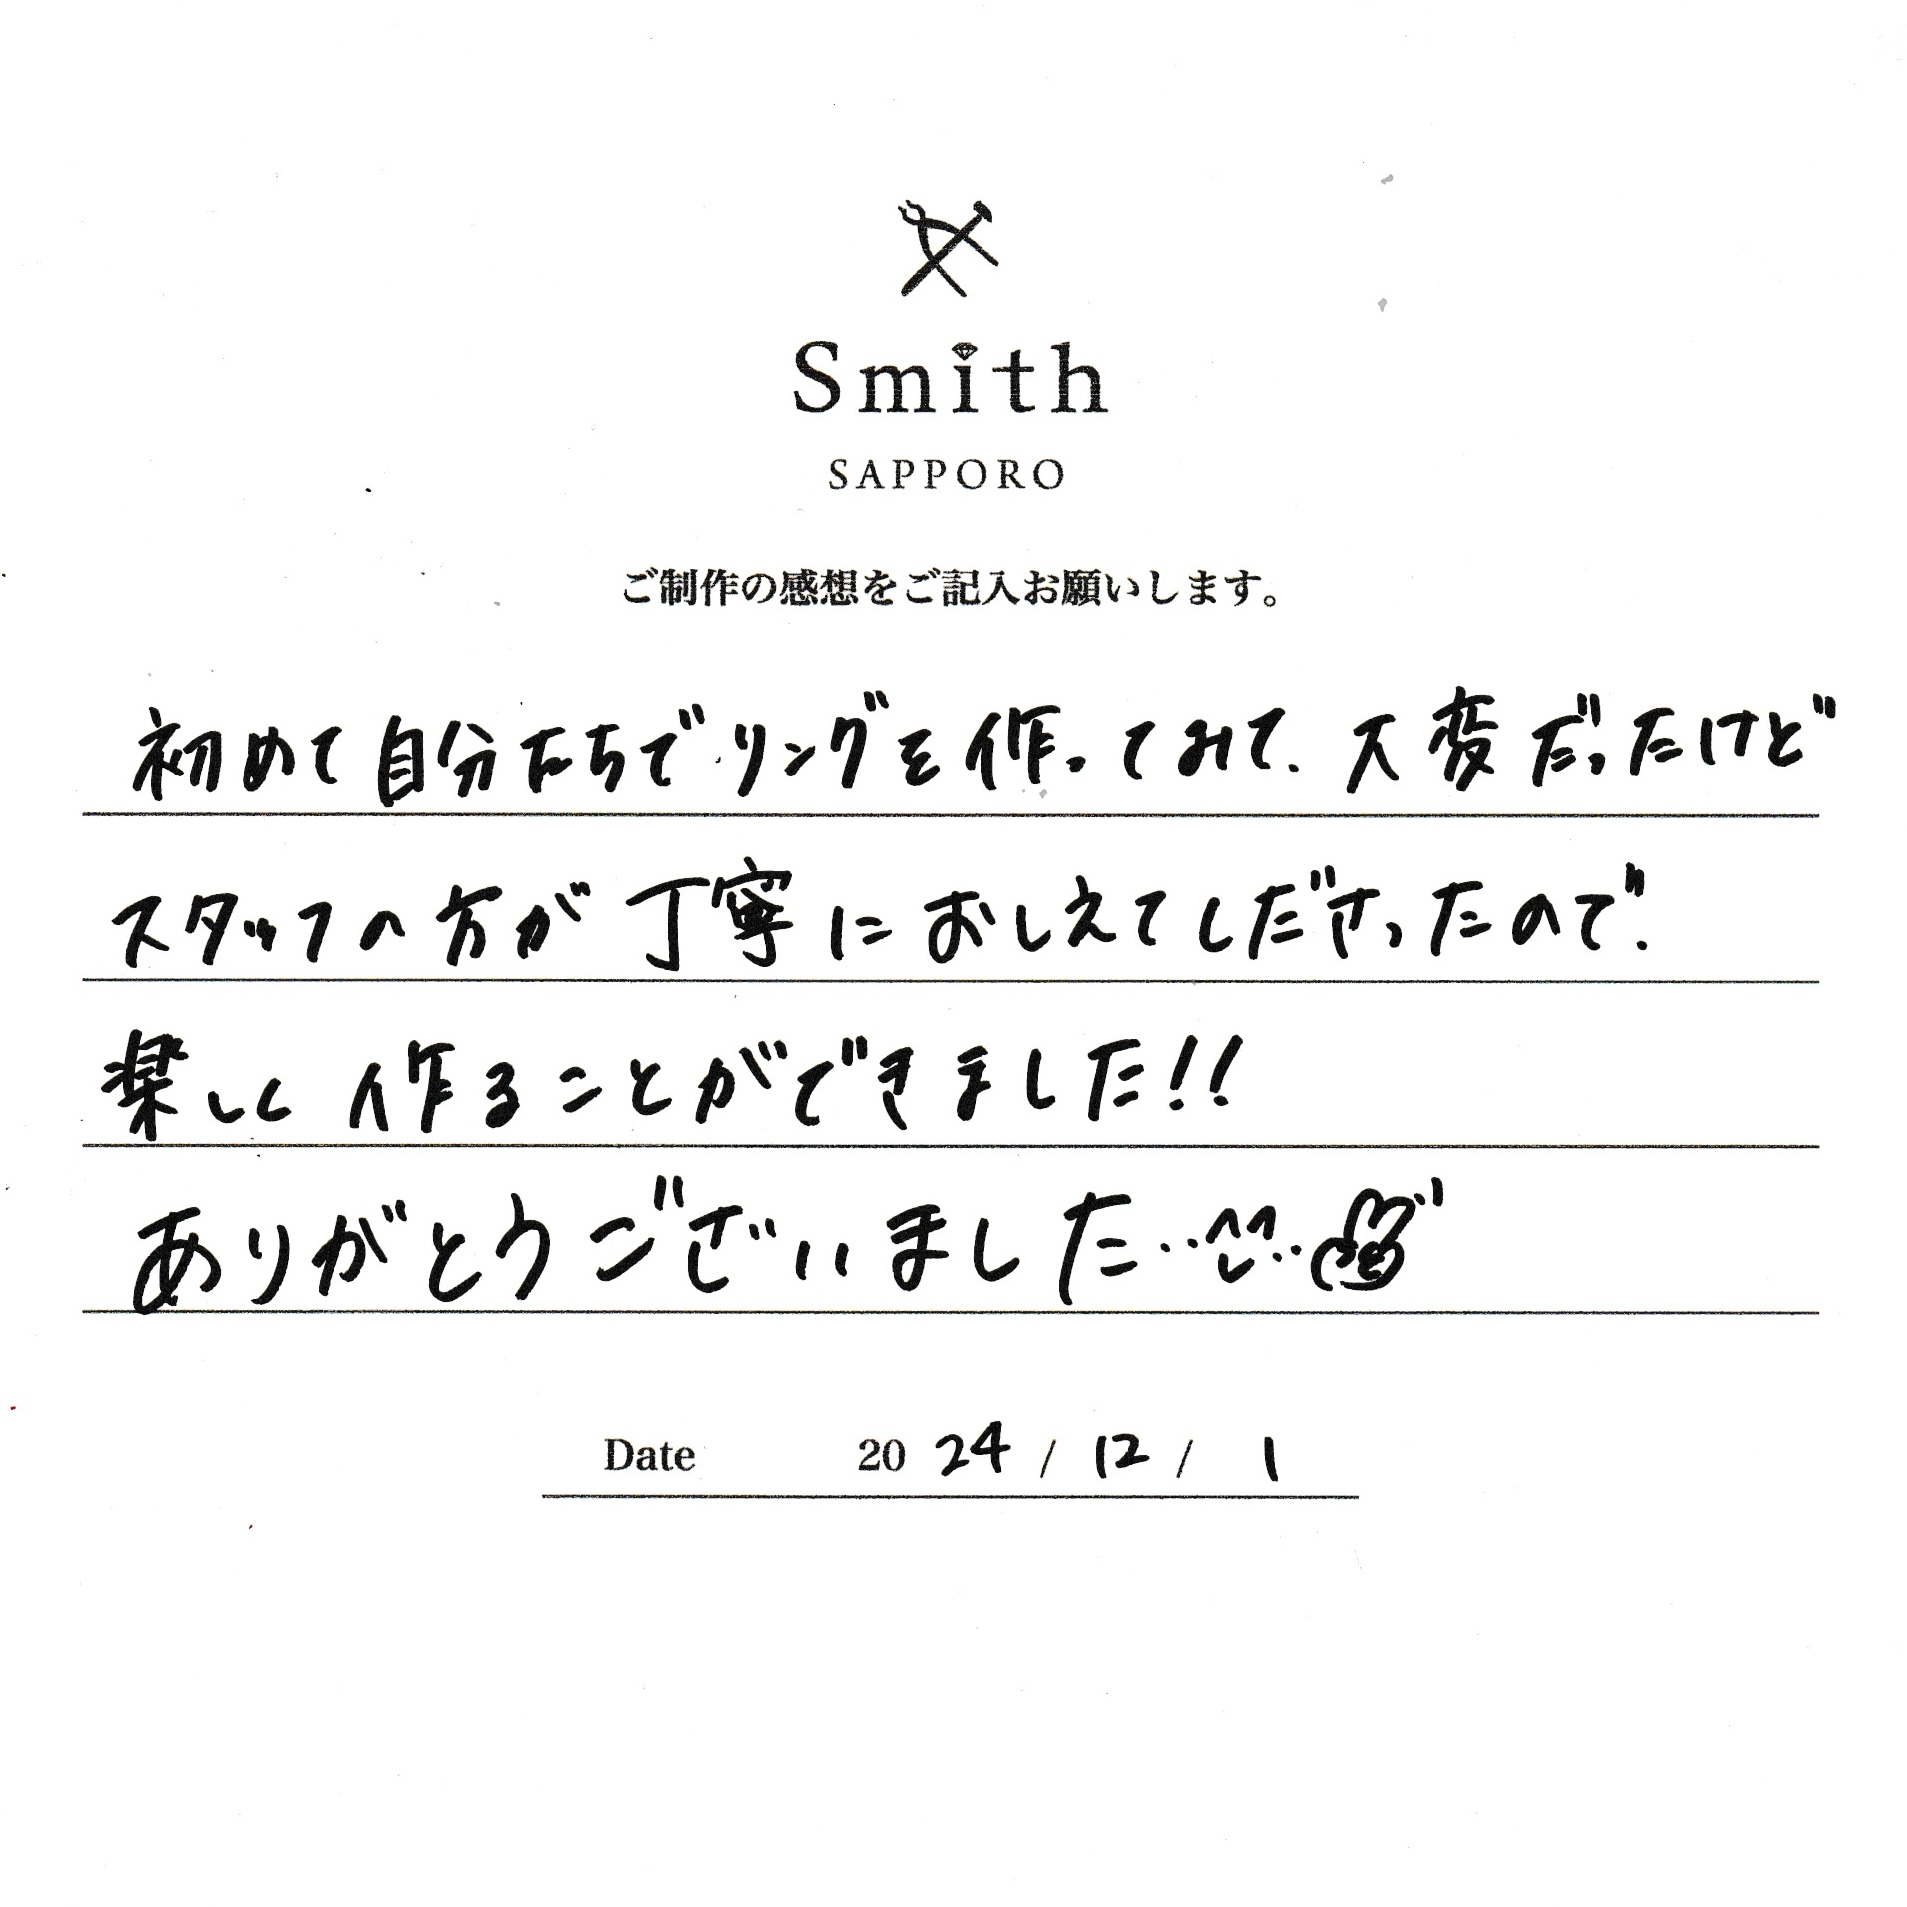 Smith
SAPPORO
ご制作の感想をご記入お願いします。
初めて自分たちでリングを作ってみて、大変だったけど
スタッフの方が丁寧におしえてくださったので、
楽しく作ることができました!!
ありがとうございました
Date 2024/12/1